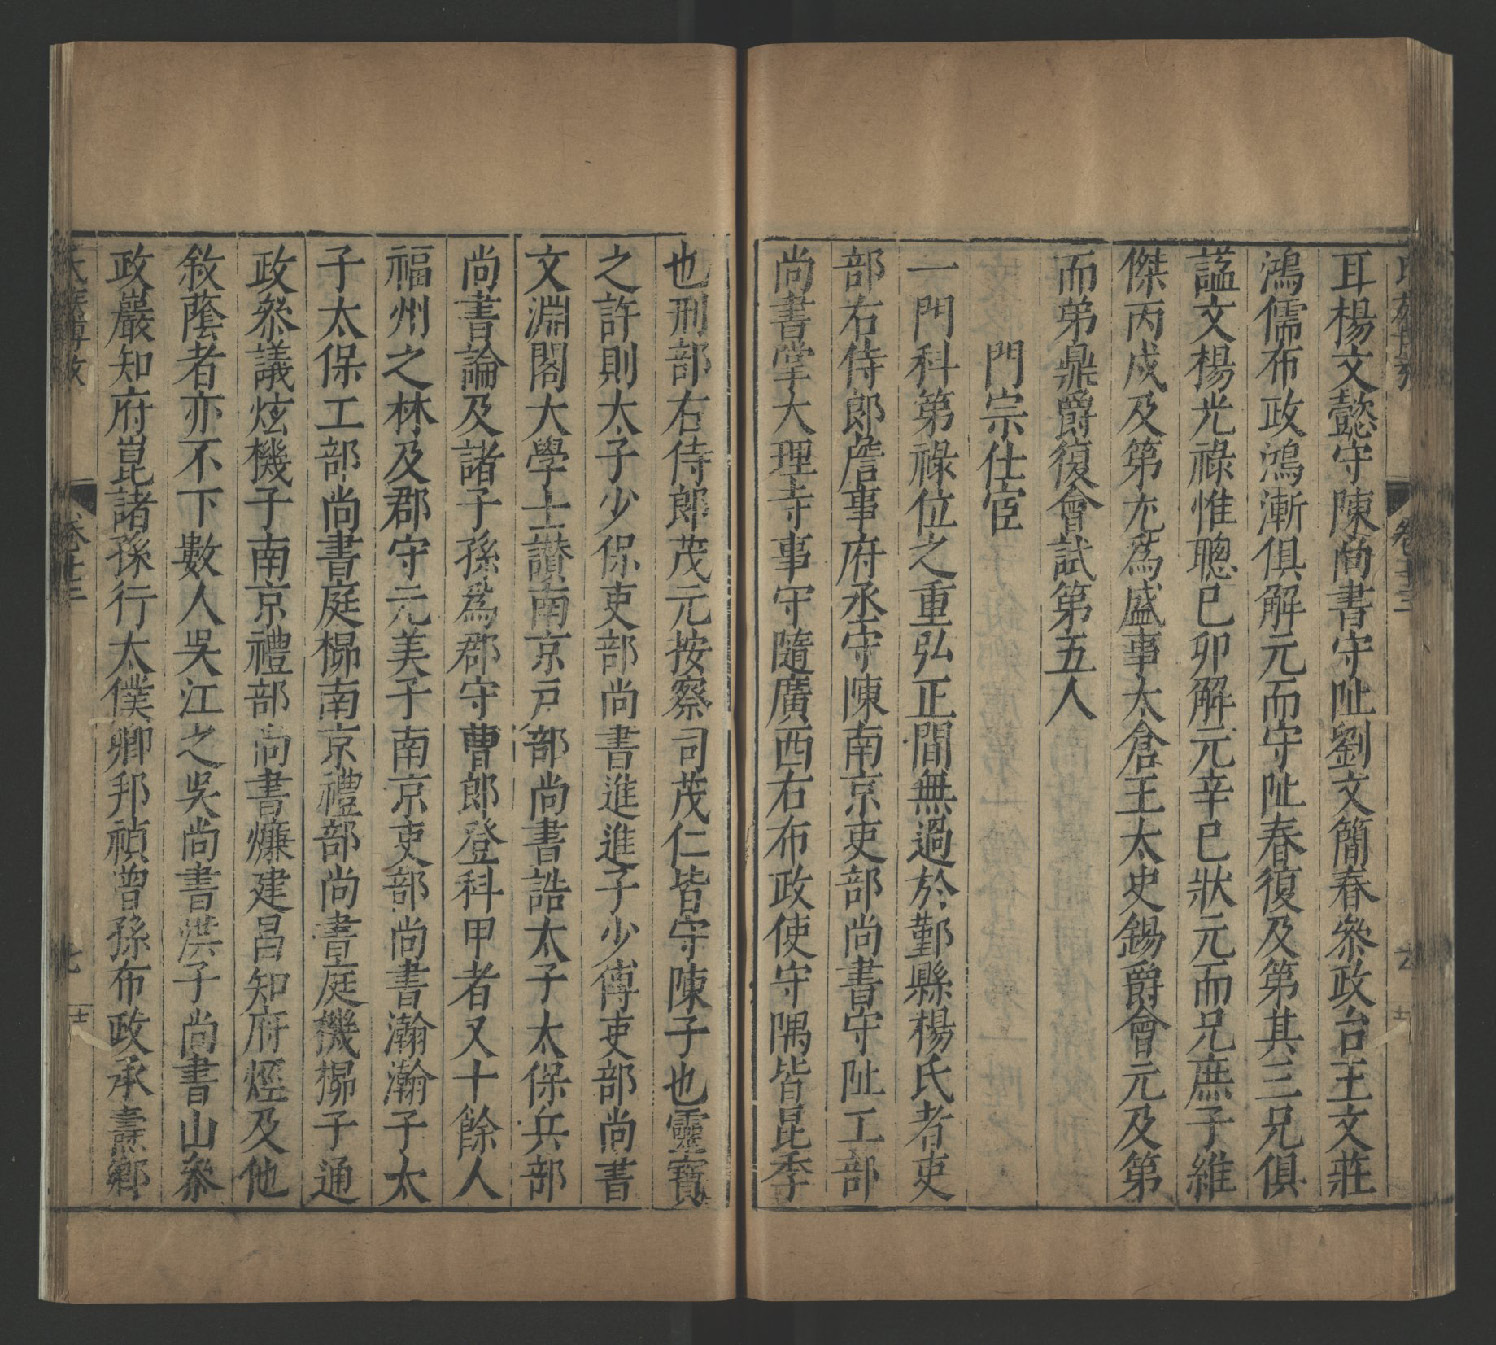 耳楊文懿守陳尚書守阯劉文簡春叅政台王文莊
鴻儒布政鴻漸俱解元而守阯春復及第其三兄俱
諡文楊光祿惟聰己卯解元辛巳狀元而兄庶子維
傑丙戌及第尤爲盛事太倉王太史錫爵會元及第
而弟鼎爵復會試第五人
門宗仕宦
一門科第祿位之重弘正間無過於鄞縣楊氏者吏
部右侍郎詹事府丞守陳南京吏部尚書守阯工部
尚書掌大理寺事守隨廣西右布政使守隅皆昆季
也刑部右侍郎茂元按察司茂仁皆守陳子也靈寳
之許則太子少保吏部尚書進進子少傅吏部尚書
文淵閣大學士讃南京戶部尚書誥太子太保兵部
尚書論及諸子孫爲郡守曹郎登科甲者又十餘人
福州之林及郡守元美子南京吏部尚書瀚瀚子太
子太保工部尚書庭㭿南京禮部尚書庭機㭿子通
政叅議炫機子南京禮部尚書燫建昌知府烴及他
敘蔭者亦不下數人吳江之吳尚書洪子尚書山叅
政巖知府崑諸孫行太僕卿邦禎曾孫布政承燾鄉